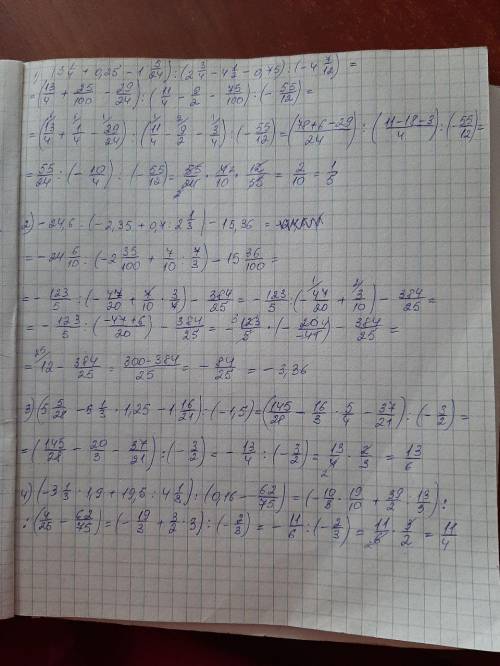 1) (3 1/4 + 0,25 - 1 5/24) : (2 3/4 - 4 1/2 - 0,75) : (-4 7/12) =
= (13/4 + 25/100 - 29/24) : (11/4 - 9/2 - 75/100) : (- 55/12) =
= (13/4 + 1/4 - 29/24) : (11/4 - 9/2 - 3/4) : (- 55/12) = (78+6-29)/24 : ((11-18-3)/4) : (- 55/12) =
= 55/24 : (- 10/4) : (- 55/12) = 55/24 · 4/10 · 12/55 = 2/10 = 1/5
2) -24,6 : (-2,35 + 0,7 : 2 1/3) - 15,36 =
= -24 6/10 : (-2 35/100 + 7/10 : 7/3) - 15 36/100 =
= - 123/5 : (- 47/20 + 7/10 · 3/7) - 384/25 = - 123/5 : (- 47/20 + 3/10) - 384/25 =
= - 123/5 : ((-47+6)/20) - 384/25 = - 123/5 · (- 20/-41) - 384/25 =
= 12 - 384/25 = (300-384)/25 = - 84/25 = -3,36
3) (5 5/28 - 5 1/3 · 1,25 - 1 16/21) : (-1,5) = (145/28 - 16/3 · 5/4 - 37/21) : (- 3/2) =
= (145/28 - 20/3 - 37/21) : (- 3/2) = - 13/4 : (- 3/2) = 13/4 · 2/3 = 13/6
4) (-3 1/3 · 1,9 + 19,5 : 4 1/3) : (0,16 - 62/75) = (- 10/3 · 19/10 + 39/2 : 13/3) :
: (4/25 - 62/75) = (- 19/3 + 3/2 · 3) : (- 2/3) = - 11/6 : (- 2/3) = 11/6 · 3/2 = 11/4